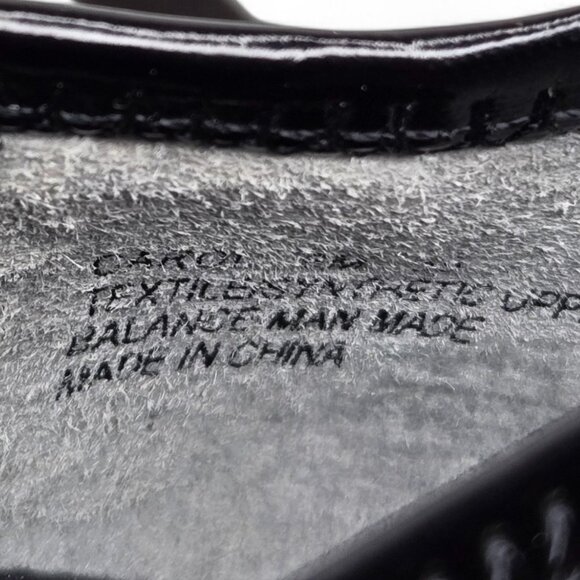 TEXTILE/SYNTHETIC UPP
BALANCE MAN MADE
MADE IN CHINA